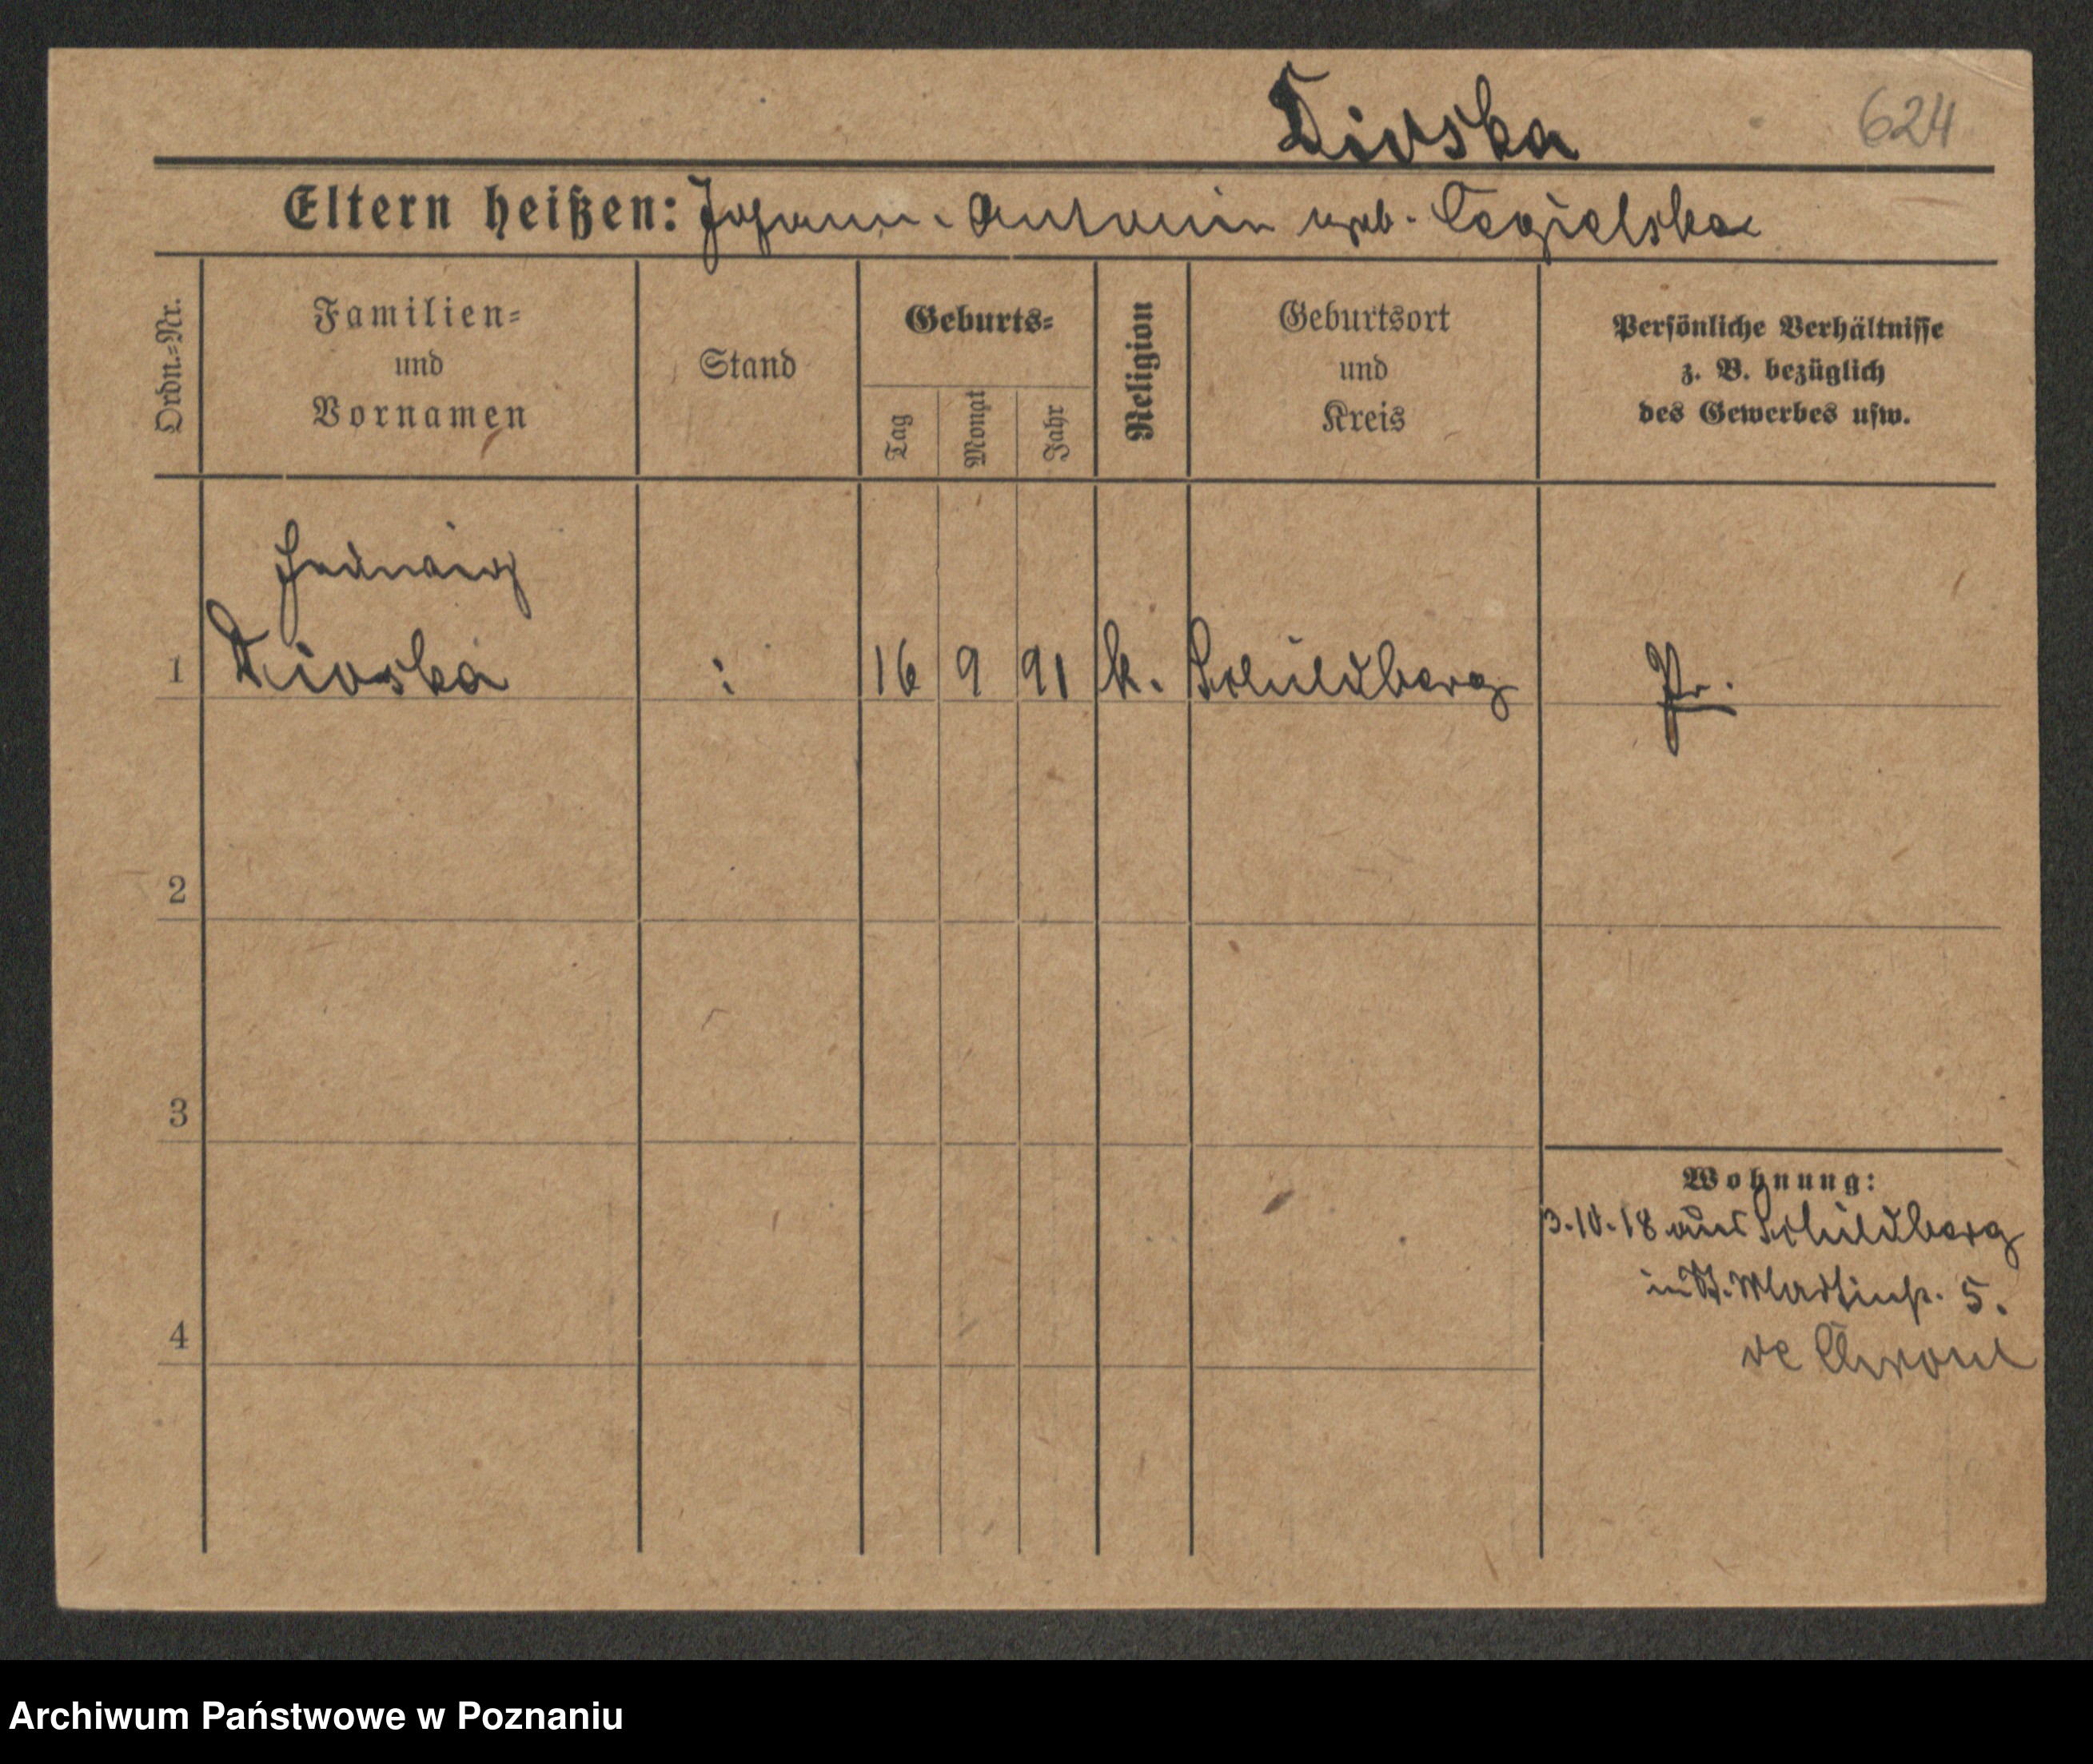 Dioska 624
Eltern heißen: Johann - Antonin geb. Cegielska
Ordn.-Nr.
Familien-
und
Vornamen
Stand
Geburts-
Tag
Monat
Jahr
Religion
Geburtsort
und
Kreis
Persönliche Verhältnisse
z. B. bezüglich
des Gewerbes usw.
Hedwig
1 Dioska : 16 9 91 k. Schildberg Pr.
2
3
4
Wohnung:
3.10.18 aus Schildberg
in St. Martinstr. 5.
Archiwum Państwowe w Poznaniu